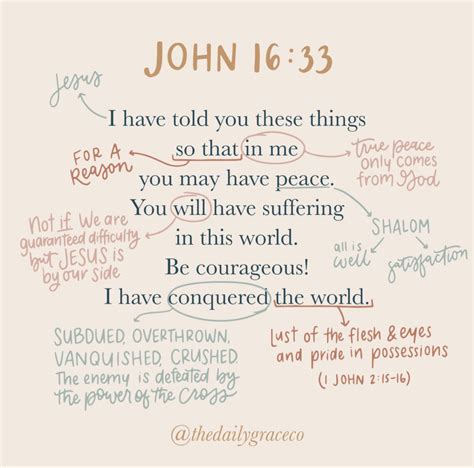 JOHN 16:33
Jesus
I have told you these things
so that in me
you may have peace.
You will have suffering
in this world.
Be courageous!
I have conquered the world.
FOR A
Reason
true peace
only comes
from God
Not if We are
guaranteed difficulty
but JESUS is
by our side
SHALOM
all is
well
satisfaction
SUBDUED, OVERTHROWN,
VANQUISHED, CRUSHED
The enemy is defeated by
the power of the Cross
Lust of the flesh & eyes
and pride in possessions
(1 JOHN 2:15-16)
@thedailygraceco